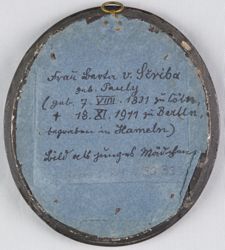 Frau Berta v. Scriba
geb. Pauly
(geb. 7. VIII. 1831 zu Cöln,
† 18. XI. 1911 zu Berlin,
begraben in Hameln)
Bild als junges Mädchen